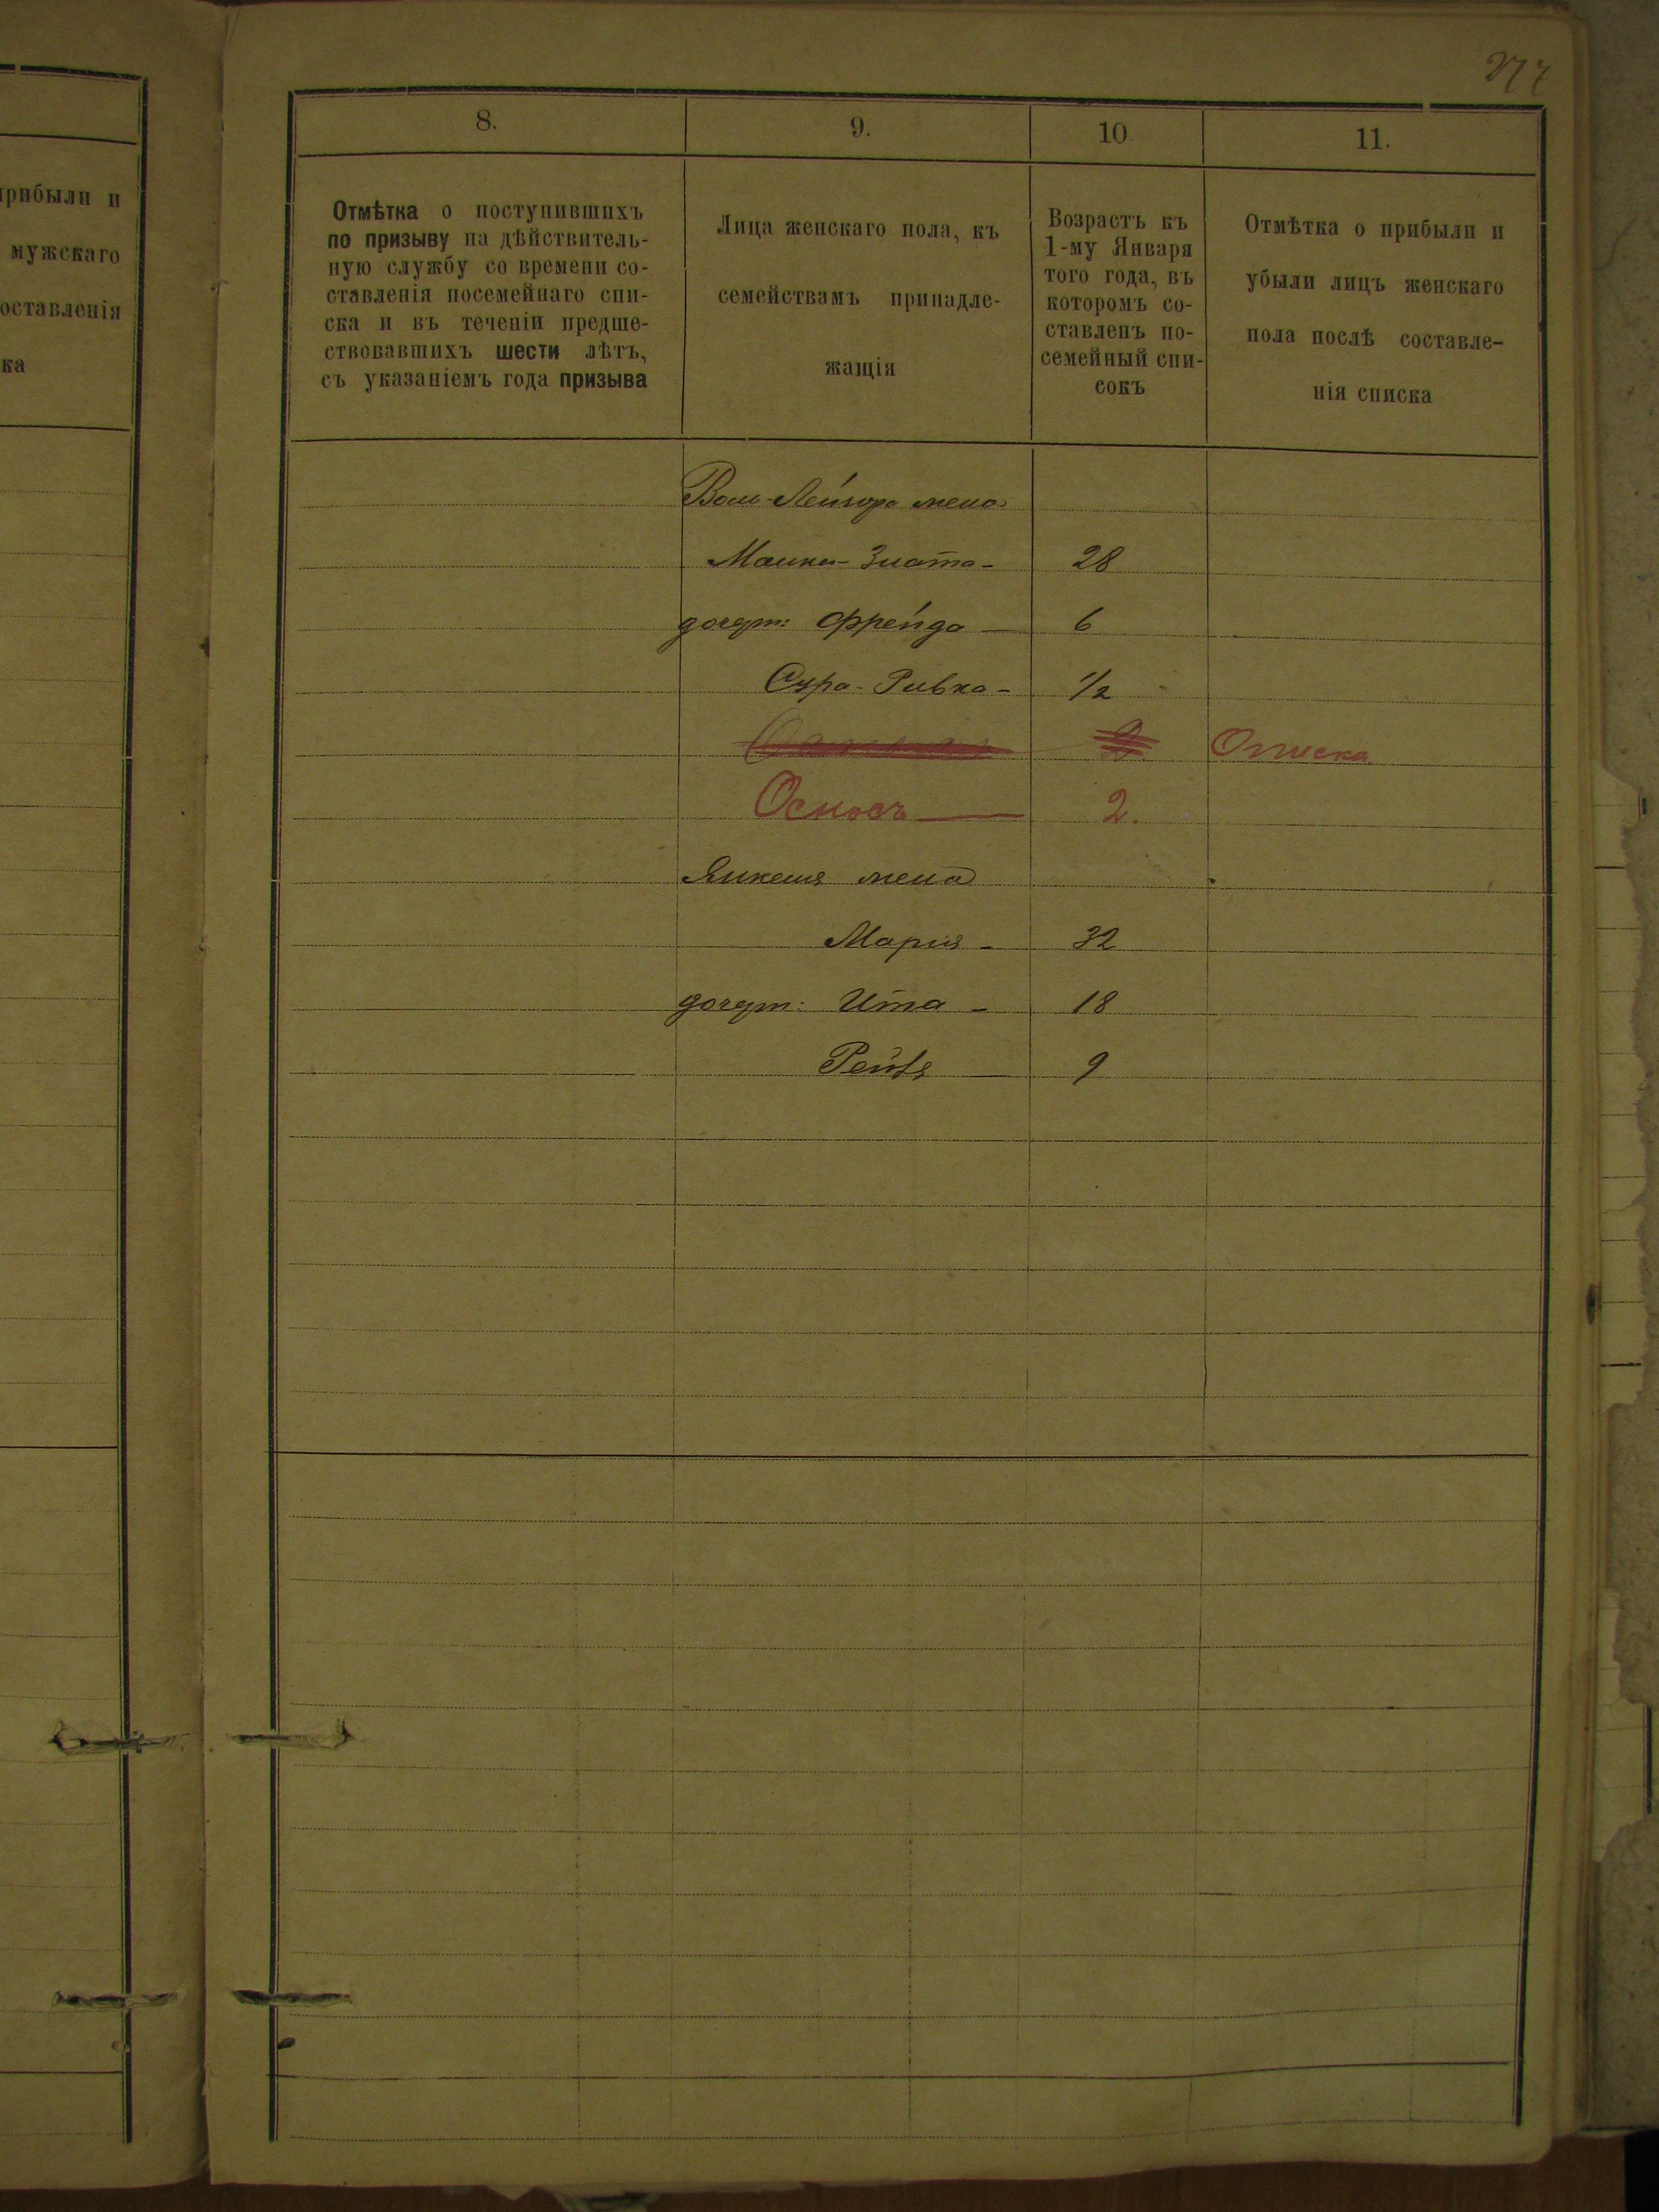 277
рибыли и
мужскаго
оставленія
ка
8.
9.
10
11.
Отмѣтка о поступившихъ
по призыву на дѣйствитель-
ную службу со времени со-
ставленія посемейнаго спи-
ска и въ теченіи предше-
ствовавшихъ шести лѣтъ,
съ указаніемъ года призыва
Лица женскаго пола, къ
семействамъ принадле-
жащія
Возрастъ къ
1-му Января
того года, въ
которомъ со-
ставленъ по-
семейный спи-
сокъ
Отмѣтка о прибыли и
убыли лицъ женскаго
пола послѣ составле-
нія списка
Лейзора жена
Злата - 28
дочери: Фрейда — 6
Сура-Ривка - 1/2
2. Описка
Осносъ — 2.
Янкеля жена
Марія - 32
дочери: Ита - 18
9